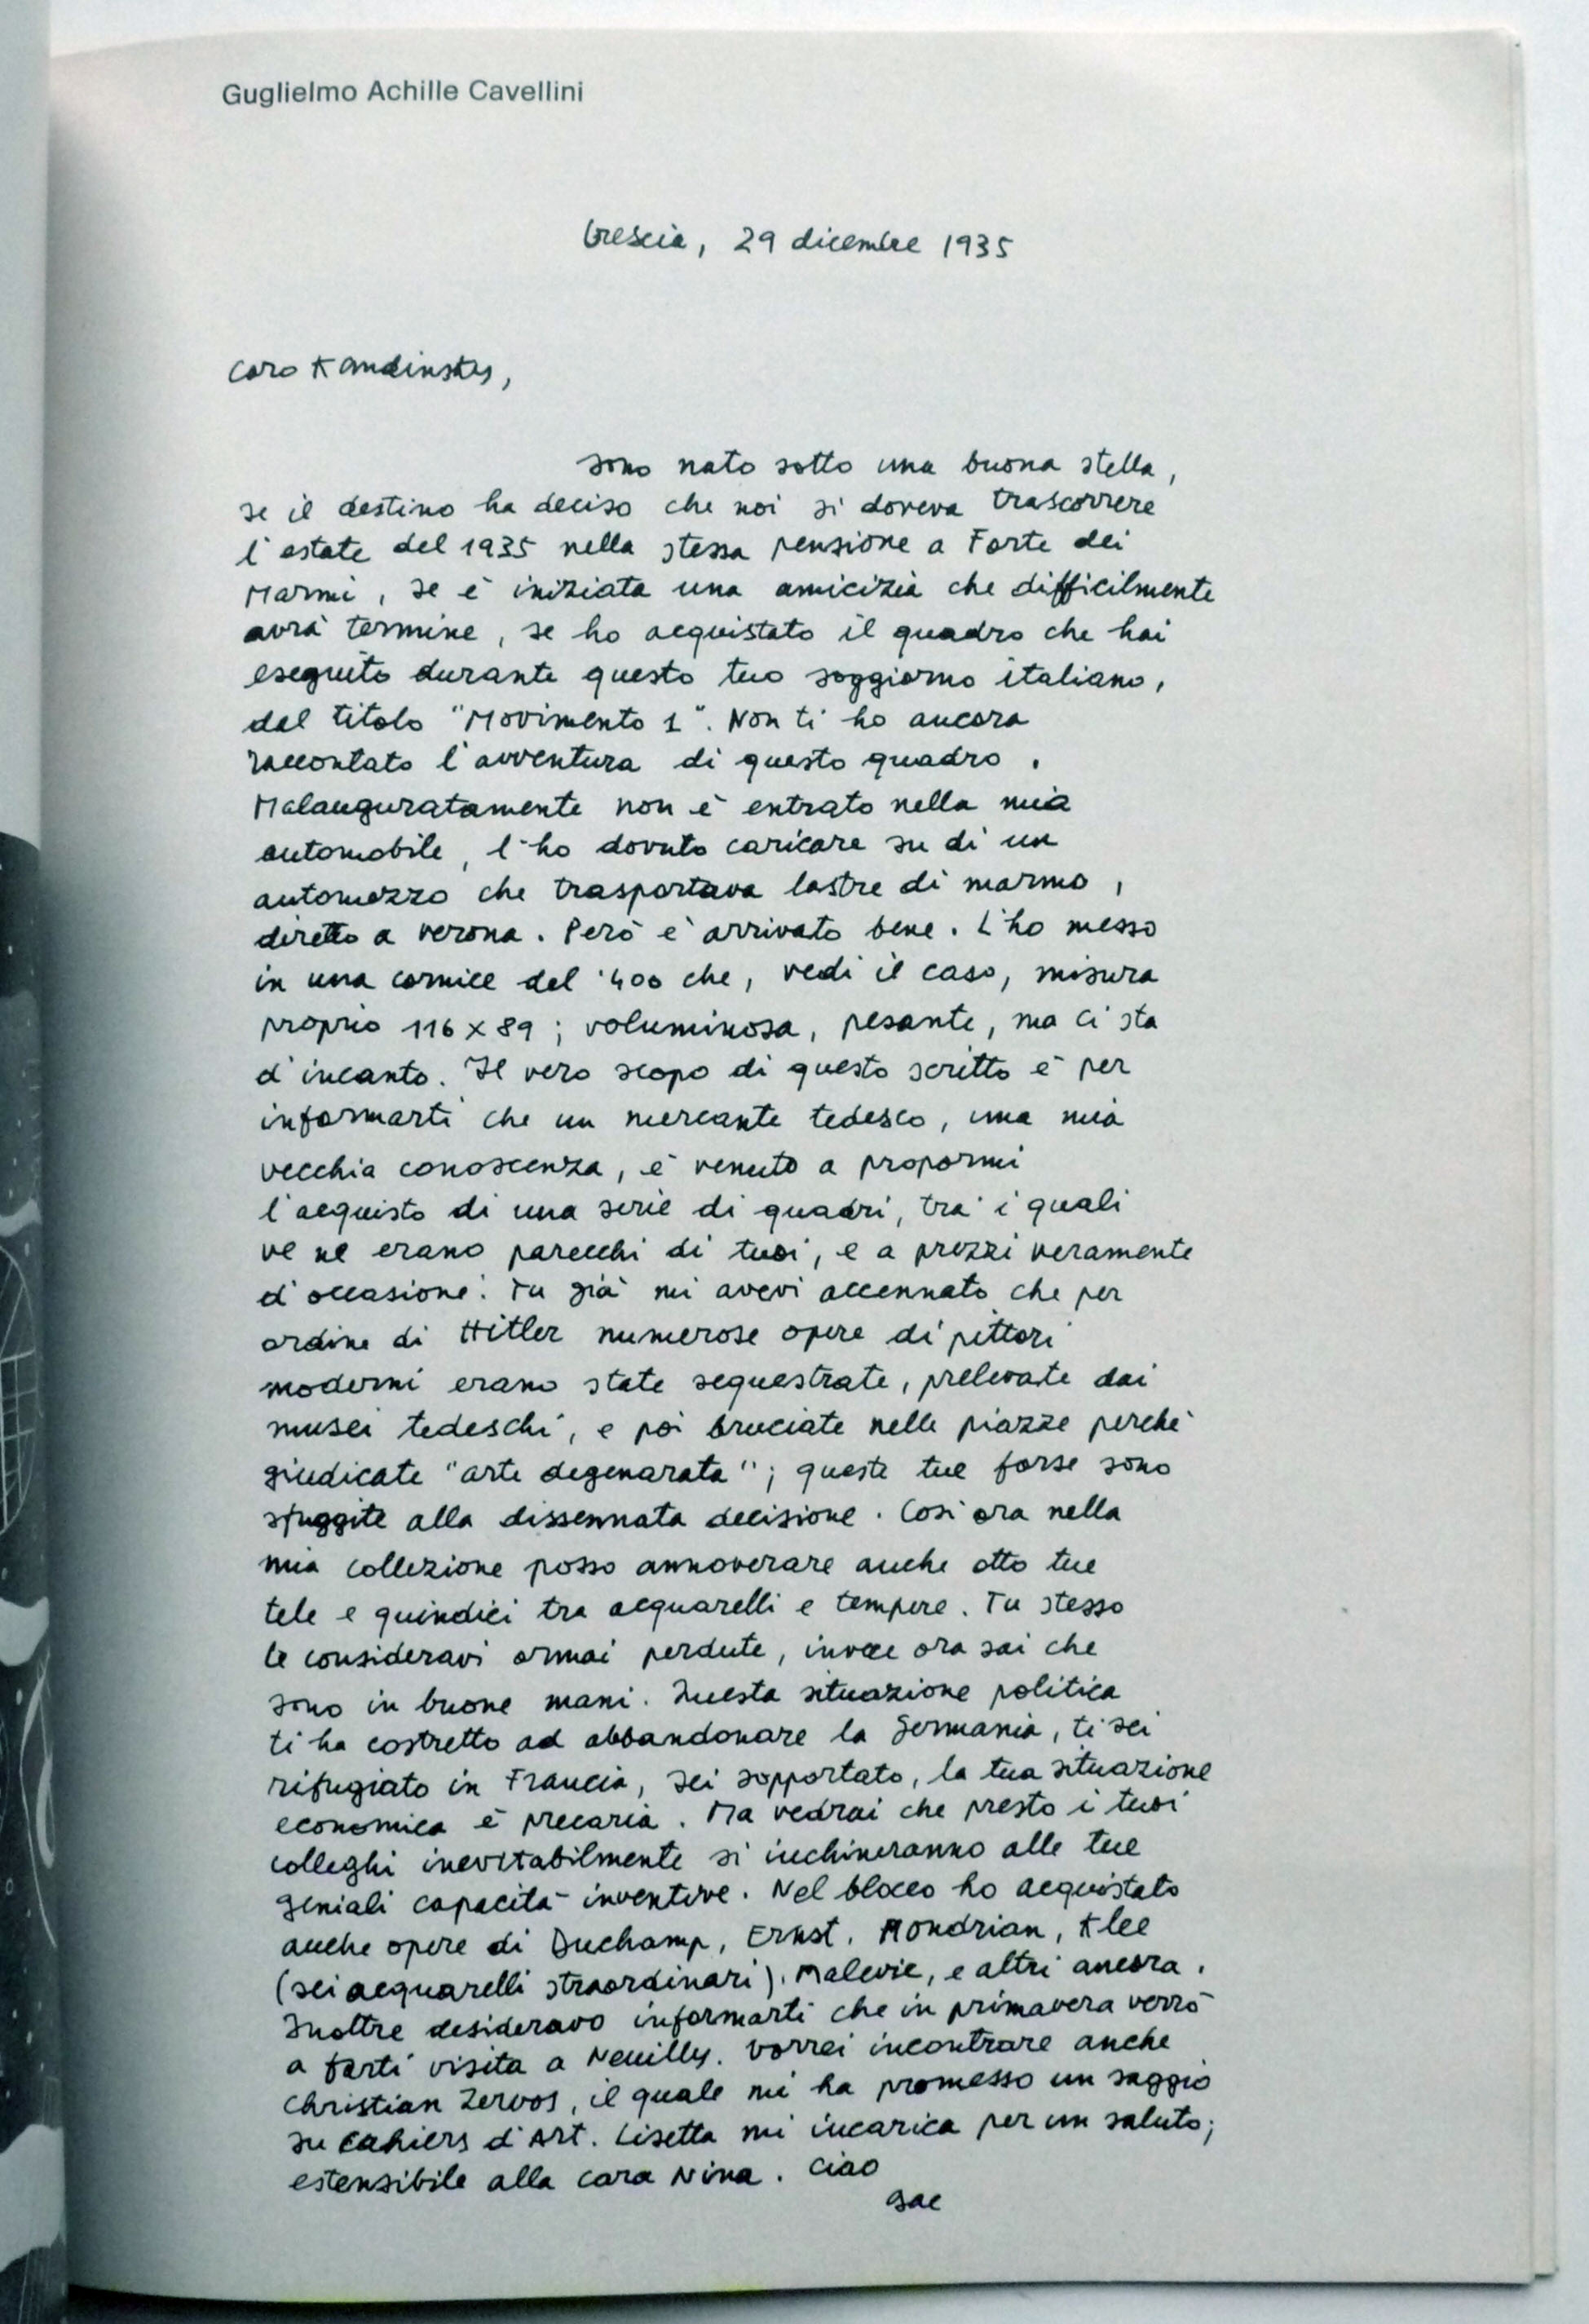 Guglielmo Achille Cavellini
Brescia, 29 dicembre 1935
Caro Kandinsky,
sono nato sotto una buona stella,
se il destino ha deciso che noi si doveva trascorrere
l'estate del 1935 nella stessa pensione a Forte dei
Marmi, se è iniziata una amicizia che difficilmente
avrà termine, se ho acquistato il quadro che hai
eseguito durante questo tuo soggiorno italiano,
dal titolo "Movimento 1". Non ti ho ancora
raccontato l'avventura di questo quadro.
Malauguratamente non è entrato nella mia
automobile, l'ho dovuto caricare su di un
automezzo che trasportava lastre di marmo,
diretto a Verona. Però è arrivato bene. L'ho messo
in una cornice del '400 che, vedi il caso, misura
proprio 116 x 89; voluminosa, pesante, ma ci sta
d'incanto. Il vero scopo di questo scritto è per
informarti che un mercante tedesco, una mia
vecchia conoscenza, è venuto a propormi
l'acquisto di una serie di quadri, tra i quali
ve ne erano parecchi di tuoi, e a prezzi veramente
d'occasione. Tu già mi avevi accennato che per
ordine di Hitler numerose opere di pittori
moderni erano state sequestrate, prelevate dai
musei tedeschi, e poi bruciate nelle piazze perchè
giudicate "arte degenarata"; queste tue forse sono
sfuggite alla dissennata decisione. Così ora nella
mia collezione posso annoverare anche otto tue
tele e quindici tra acquarelli e tempere. Tu stesso
le consideravi ormai perdute, invece ora sai che
sono in buone mani. Questa situazione politica
ti ha costretto ad abbandonare la Germania, ti sei
rifugiato in Francia, sei sopportato, la tua situazione
economica è precaria. Ma vedrai che presto i tuoi
colleghi inevitabilmente si inchineranno alle tue
geniali capacità inventive. Nel blocco ho acquistato
anche opere di Duchamp, Ernst, Mondrian, Klee
(sei acquarelli straordinari), Malevic, e altri ancora.
Inoltre desideravo informarti che in primavera verrò
a farti visita a Neuilly. Vorrei incontrare anche
Christian Zervos, il quale mi ha promesso un saggio
su Cahiers d'Art. Lisetta mi incarica per un saluto;
estensibile alla cara Nina. Ciao
gac